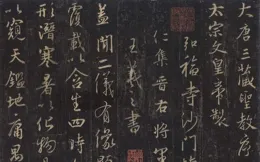 大唐三藏聖教序
太宗文皇帝製
弘福寺沙門
仁集晉右將軍
王羲之書
蓋聞二儀有像顯
覆載以含生四時
形潛寒暑以化物
以窺天鑑地庸愚